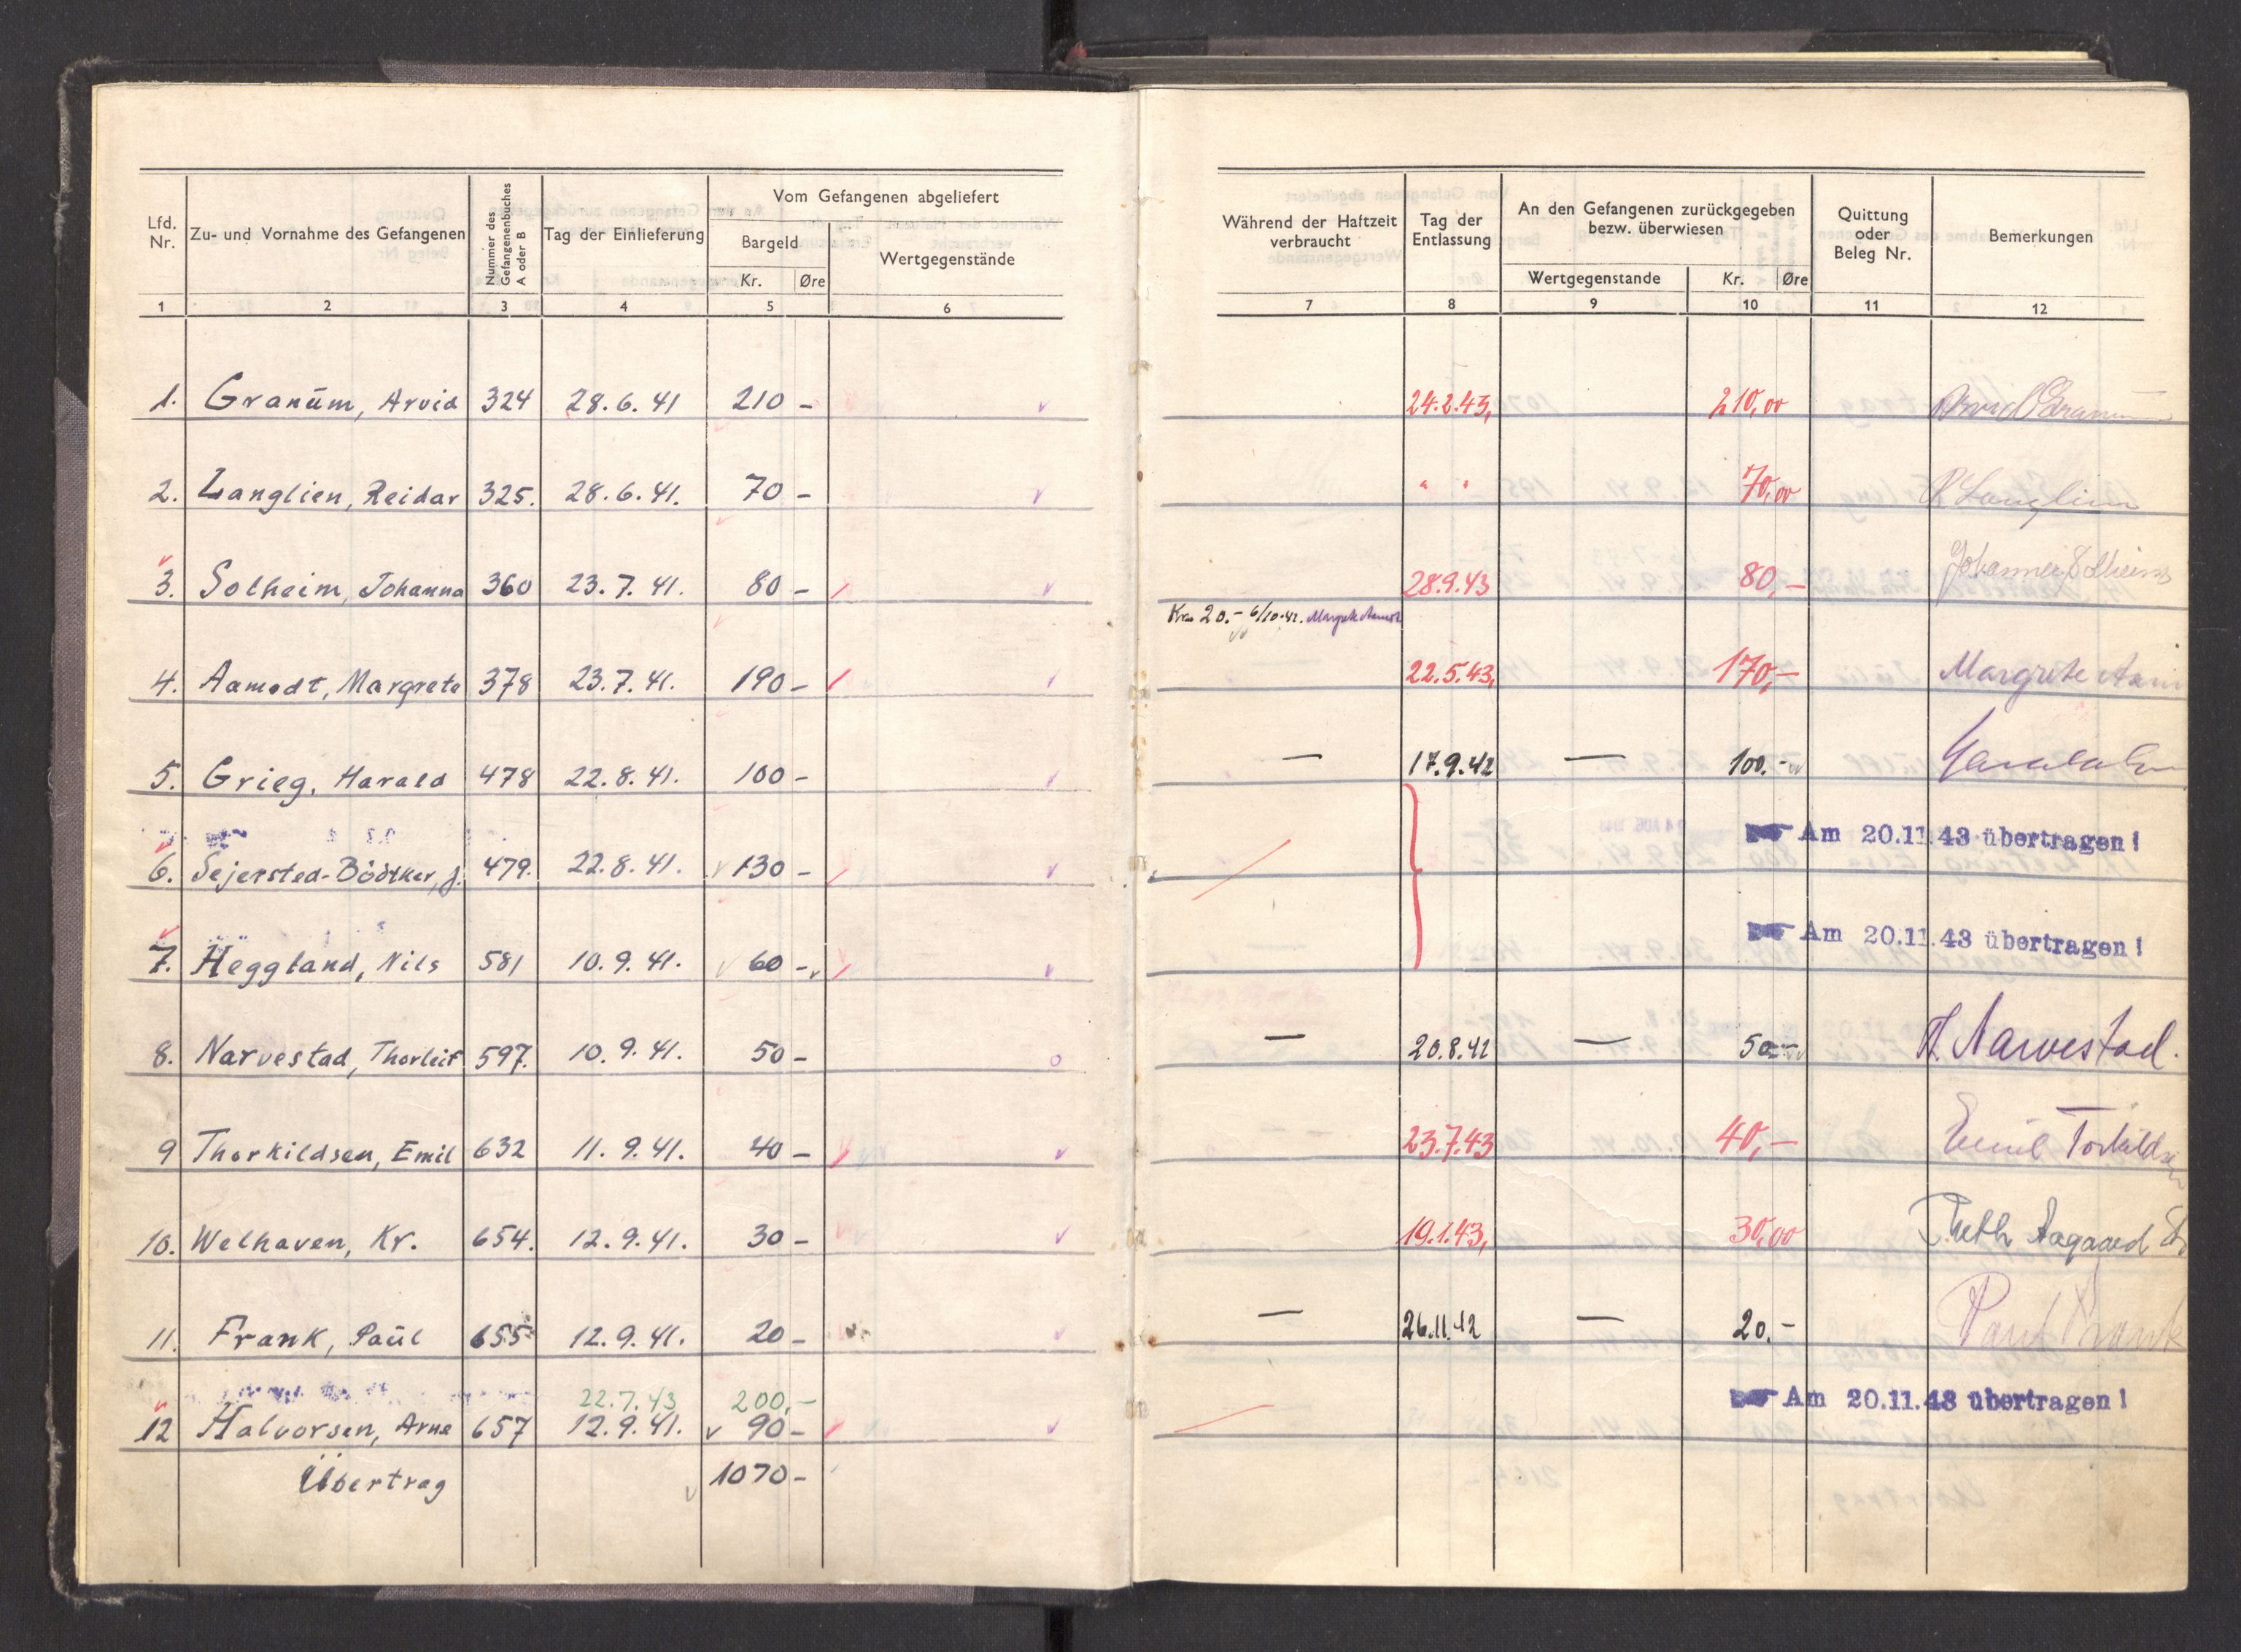 Lfd. Nr. | Zu- und Vornahme des Gefangenen | Nummer des Gefangenenbuches A oder B | Tag der Einlieferung | Vom Gefangenen abgeliefert | Während der Haftzeit verbraucht | Tag der Entlassung | An den Gefangenen zurückgegeben bezw. überwiesen | Quittung oder Beleg Nr. | Bemerkungen
Bargeld | Wertgegenstände | Wertgegenstande | Kr. | Øre
Kr. | Øre
1 | 2 | 3 | 4 | 5 | 6 | 7 | 8 | 9 | 10 | 11 | 12
1. | Granŭm, Arvid | 324 | 28.6.41 | 210 - | 24.2.43, | 210,00 | Arvid Granum
2. | Langlien, Reidar | 325. | 28.6.41. | 70 - | " " | 70,00 | R Langlien
3. | Solheim, Johanna | 360 | 23.7.41. | 80 - | 28.9.43 | 80,- | Solheim
Kr. 20.- 6/10-42. Margrete Aamodt
4. | Aamodt, Margrete | 378 | 23.7.41. | 190 - | 22.5.43, | 170,- | Margrete
5. | Grieg, Harald | 478 | 22.8.41. | 100 - | — | 17.9.42 | — | 100.-
6. | Sejersted-Bödtker, J. | 479. | 22.8.41. | 130 - | Am 20.11.43 übertragen!
7. | Heggland, Nils | 581 | 10.9.41. | 60 - | Am 20.11.43 übertragen!
8. | Narvestad, Thorleif | 597. | 10.9.41. | 50 - | — | 20.8.42 | — | 50.- | T. Narvestad.
9 | Thorkildsen, Emil | 632 | 11.9.41. | 40 - | 23.7.43 | 40,- | Emil Torkildsen
10. | Welhaven, Kr. | 654. | 12.9.41. | 30 - | 19.1.43, | 30,00 | Aagaard
11. | Frank, Paŭl | 655 | 12.9.41. | 20 - | — | 26.11.42 | — | 20.- | Paul Frank
22.7.43 | 200,-
12 | Halvorsen, Arne | 657 | 12.9.41. | 90 - | Am 20.11.43 übertragen!
Übertrag | 1070 -